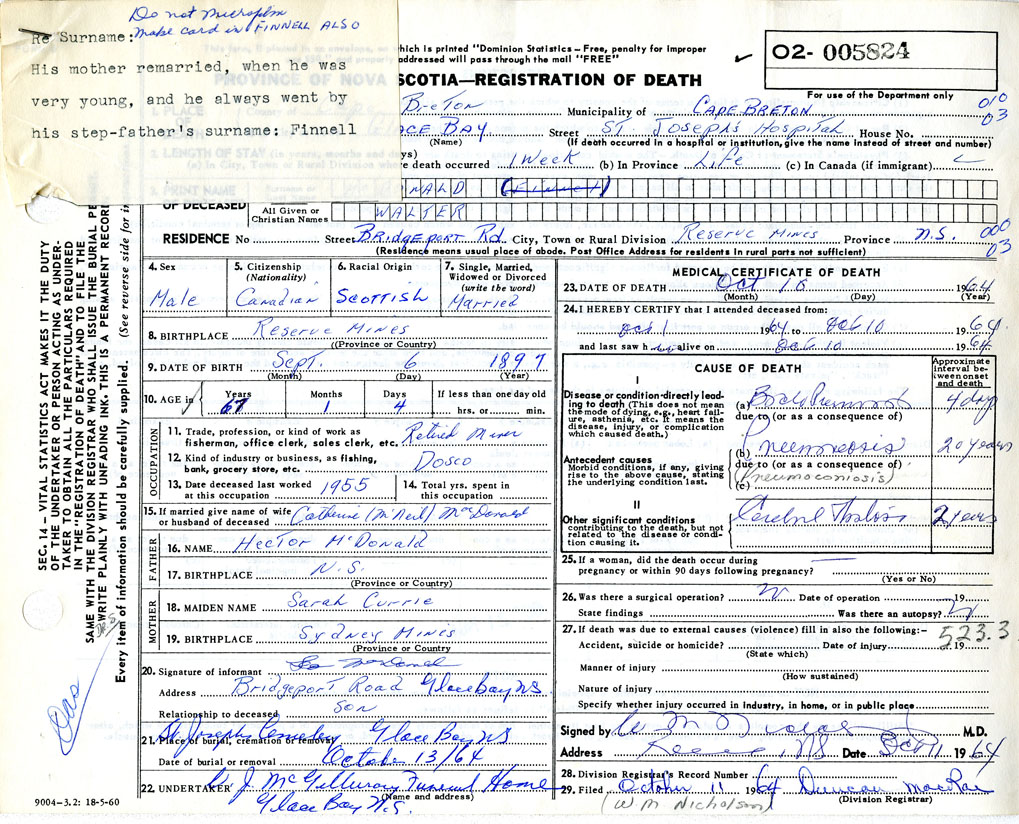 Do not microfilm
Make card in FINNELL ALSO
Re Surname:
His mother remarried, when he was
very young, and he always went by
his step-father's surname: Finnell
which is printed "Dominion Statistics—Free, penalty for improper
addressed will pass through the mail "FREE"
PROVINCE OF NOVA SCOTIA—REGISTRATION OF DEATH
02- 005824
For use of the Department only
Breton Municipality of CAPE BRETON 010 03
ACE BAY Street ST. Joseph's Hospital House No.
(Name) (If death occurred in a hospital or institution, give the name instead of street and number)
2. LENGTH OF STAY (in years, months and days)
e death occurred 1 Week (b) In Province Life (c) In Canada (if immigrant)
3. PRINT NAME NALD (FINNELL)
OF DECEASED All Given or Christian Names WALTER
RESIDENCE No Street Bridgeport Rd. City, Town or Rural Division Reserve Mines Province N.S. 000 03
(Residence means usual place of abode. Post Office Address for residents in rural parts not sufficient)
SEC. 14 — VITAL STATISTICS ACT MAKES IT THE DUTY
OF THE UNDERTAKER OR PERSON ACTING AS UNDER-
TAKER TO OBTAIN ALL THE PARTICULARS REQUIRED
IN THE "REGISTRATION OF DEATH" AND TO FILE THE
SAME WITH THE DIVISION REGISTRAR WHO SHALL ISSUE THE BURIAL PE
WRITE PLAINLY WITH UNFADING INK. THIS IS A PERMANENT RECORD
Every item of information should be carefully supplied. (See reverse side for in
4. Sex
Male
5. Citizenship
(Nationality)
Canadian
6. Racial Origin
Scottish
7. Single, Married,
Widowed or Divorced
(write the word)
Married
8. BIRTHPLACE Reserve Mines
(Province or Country)
9. DATE OF BIRTH Sept. 6 1897
(Month) (Day) (Year)
10. AGE in Years 67 Months 1 Days 4 If less than one day old
hrs. or min.
OCCUPATION
11. Trade, profession, or kind of work as
fisherman, office clerk, sales clerk, etc. Retired Miner
12. Kind of industry or business, as fishing,
bank, grocery store, etc. Dosco
13. Date deceased last worked
at this occupation 1955
14. Total yrs. spent in
this occupation
15. If married give name of wife
or husband of deceased Catherine (McNeil) MacDonald
FATHER
16. NAME Hector McDonald
17. BIRTHPLACE N.S.
(Province or Country)
MOTHER
18. MAIDEN NAME Sarah Currie
19. BIRTHPLACE Sydney Mines
(Province or Country)
20. Signature of informant McDonald
Address Bridgeport Road Glace Bay NS
Relationship to deceased Son
21. Place of burial, cremation or removal St Josephs Cemetery Glace Bay NS
Date of burial or removal October 13/64
22. UNDERTAKER J. McGillivray Funeral Home
(Name and address)
Glace Bay N.S.
9004—3.2: 18-5-60
MEDICAL CERTIFICATE OF DEATH
23. DATE OF DEATH Oct 10 1964
(Month) (Day) (Year)
24. I HEREBY CERTIFY that I attended deceased from:
Oct 1 1964 to Oct 10 1964
and last saw him alive on Oct 10 1964
CAUSE OF DEATH
Approximate
interval be-
tween onset
and death
I
Disease or condition directly lead-
ing to death (This does not mean
the mode of dying, e.g., heart fail-
ure, asthenia, etc. It means the
disease, injury, or complication
which caused death.)
(a) 4 days
due to (or as a consequence of)
Antecedent causes
Morbid conditions, if any, giving
rise to the above cause, stating
the underlying condition last.
(b) 20 years
due to (or as a consequence of)
(Pneumoconiosis)
(c)
II
Other significant conditions
contributing to the death, but not
related to the disease or condi-
tion causing it.
2 years
25. If a woman, did the death occur during
pregnancy or within 90 days following pregnancy?
(Yes or No)
26. Was there a surgical operation? Date of operation 19
State findings Was there an autopsy?
27. If death was due to external causes (violence) fill in also the following:— 523.3
Accident, suicide or homicide? Date of injury 19
(State which)
Manner of injury
(How sustained)
Nature of injury
Specify whether injury occurred in industry, in home, or in public place
Signed by M.D.
Address Date Oct 11 1964
28. Division Registrar's Record Number
29. Filed October 11 1964 Duncan MacRae
(Division Registrar)
(W M Nicholson)